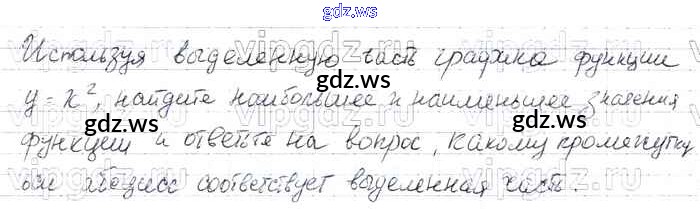 gdz.ws
Используя выделенную часть графика функции
gdz.ws
y = x², найдите наибольшее и наименьшее значения
gdz.ws
функции и ответьте на вопрос, какому промежутку
оси абсцисс соответствует выделенная часть.
gdz.ws